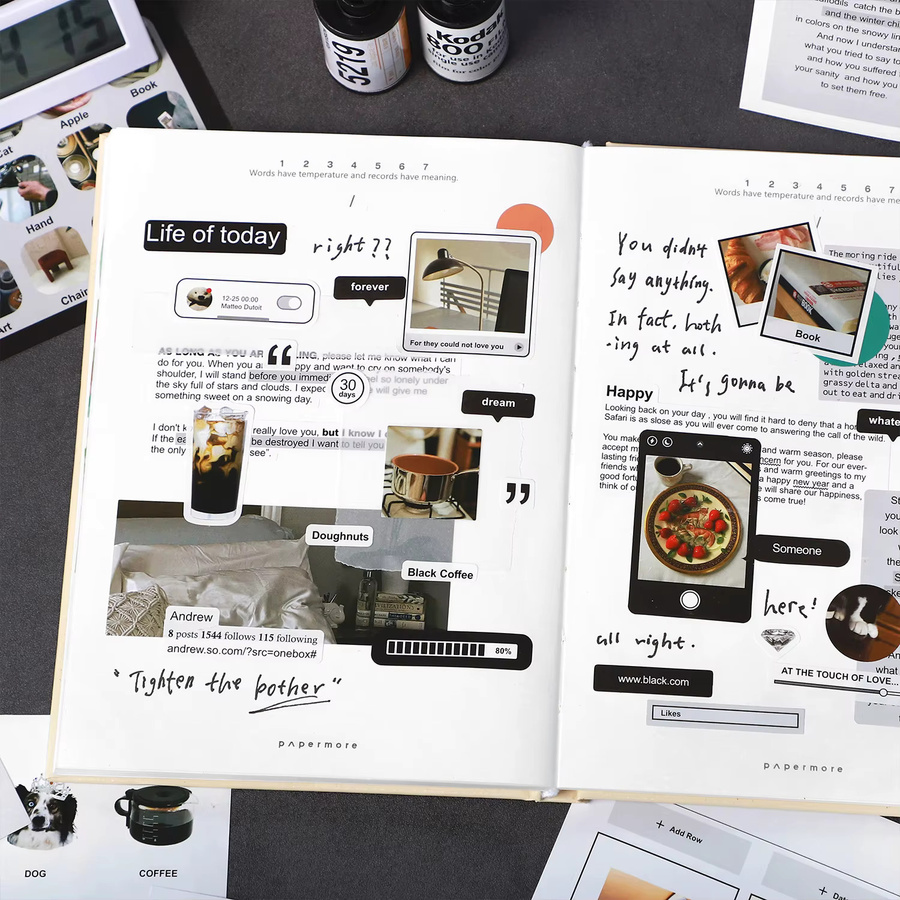 4 15
Book
Apple
Cat
Hand
Chair
Art
5219
Kodak
800
for use in
single use
daffodils catch the b
and the winter chi
in colors on the snowy lin
And now I understan
what you tried to say to
and how you suffered
your sanity and how you
to set them free.
1 2 3 4 5 6 7
Words have temperature and records have meaning.
/
Life of today
right??
forever
12-25 00.00
Matteo Dutoit
For they could not love you
AS LONG AS YOU AR LING, please let me know what I can
do for you. When you a ppy and want to cry on somebody's
shoulder, I will stand before you immedi eel so lonely under
the sky full of stars and clouds. I expec e will give me
something sweet on a snowing day.
“
30
days
dream
I don't k really love you, but I know I
If the ea be destroyed I want to tell you
the only see”.
”
Doughnuts
Black Coffee
Andrew
8 posts 1544 follows 115 following
andrew.so.com/?src=onebox#
80%
"Tighten the bother"
pʌpermore
1 2 3 4 5 6 7
Words have temperature and records have me
/
You didn't
say anything.
In fact, hoth
-ing at all.
It's gonna be
Book
The moring ride
with golden stre
grassy delta and
out to eat and dri
Happy
Looking back on your day , you will find it hard to deny that a ho
Safari is as slose as you will ever come to answering the call of the wild.
You make and warm season, please
accept m ncern for you. For our ever-
lasting frie and warm greetings to my
friends wh a happy new year and a
good fortu e will share our happiness,
think of o s come true!
whate
Someone
here!
all right.
www.black.com
AT THE TOUCH OF LOVE...
Likes
pʌpermore
St
you
look
the
what
DOG
COFFEE
+ Add Row
+ Dat